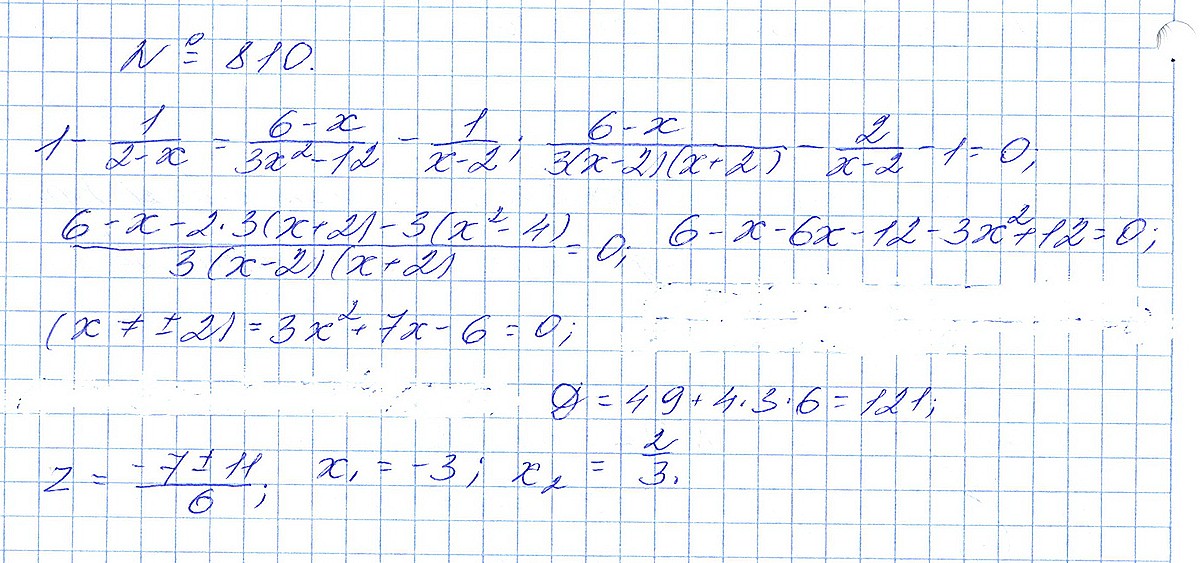 № 810.
1 - 1/(2-x) = (6-x)/(3x²-12) - 1/(x-2); (6-x)/(3(x-2)(x+2)) - 2/(x-2) - 1 = 0;
(6-x-2·3(x+2)-3(x²-4))/(3(x-2)(x+2)) = 0; 6-x-6x-12-3x²+12=0;
(x ≠ ±2) = 3x²+7x-6=0;
D = 49+4·3·6=121;
z = (-7±11)/6; x₁ = -3; x₂ = 2/3.